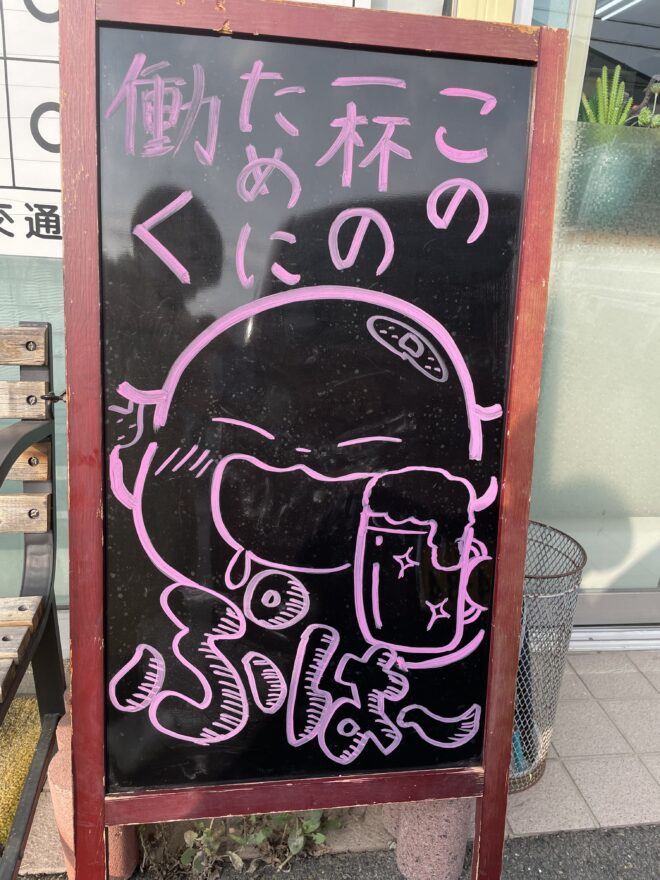 この
一杯の
ために
働く
ぷはー
交通